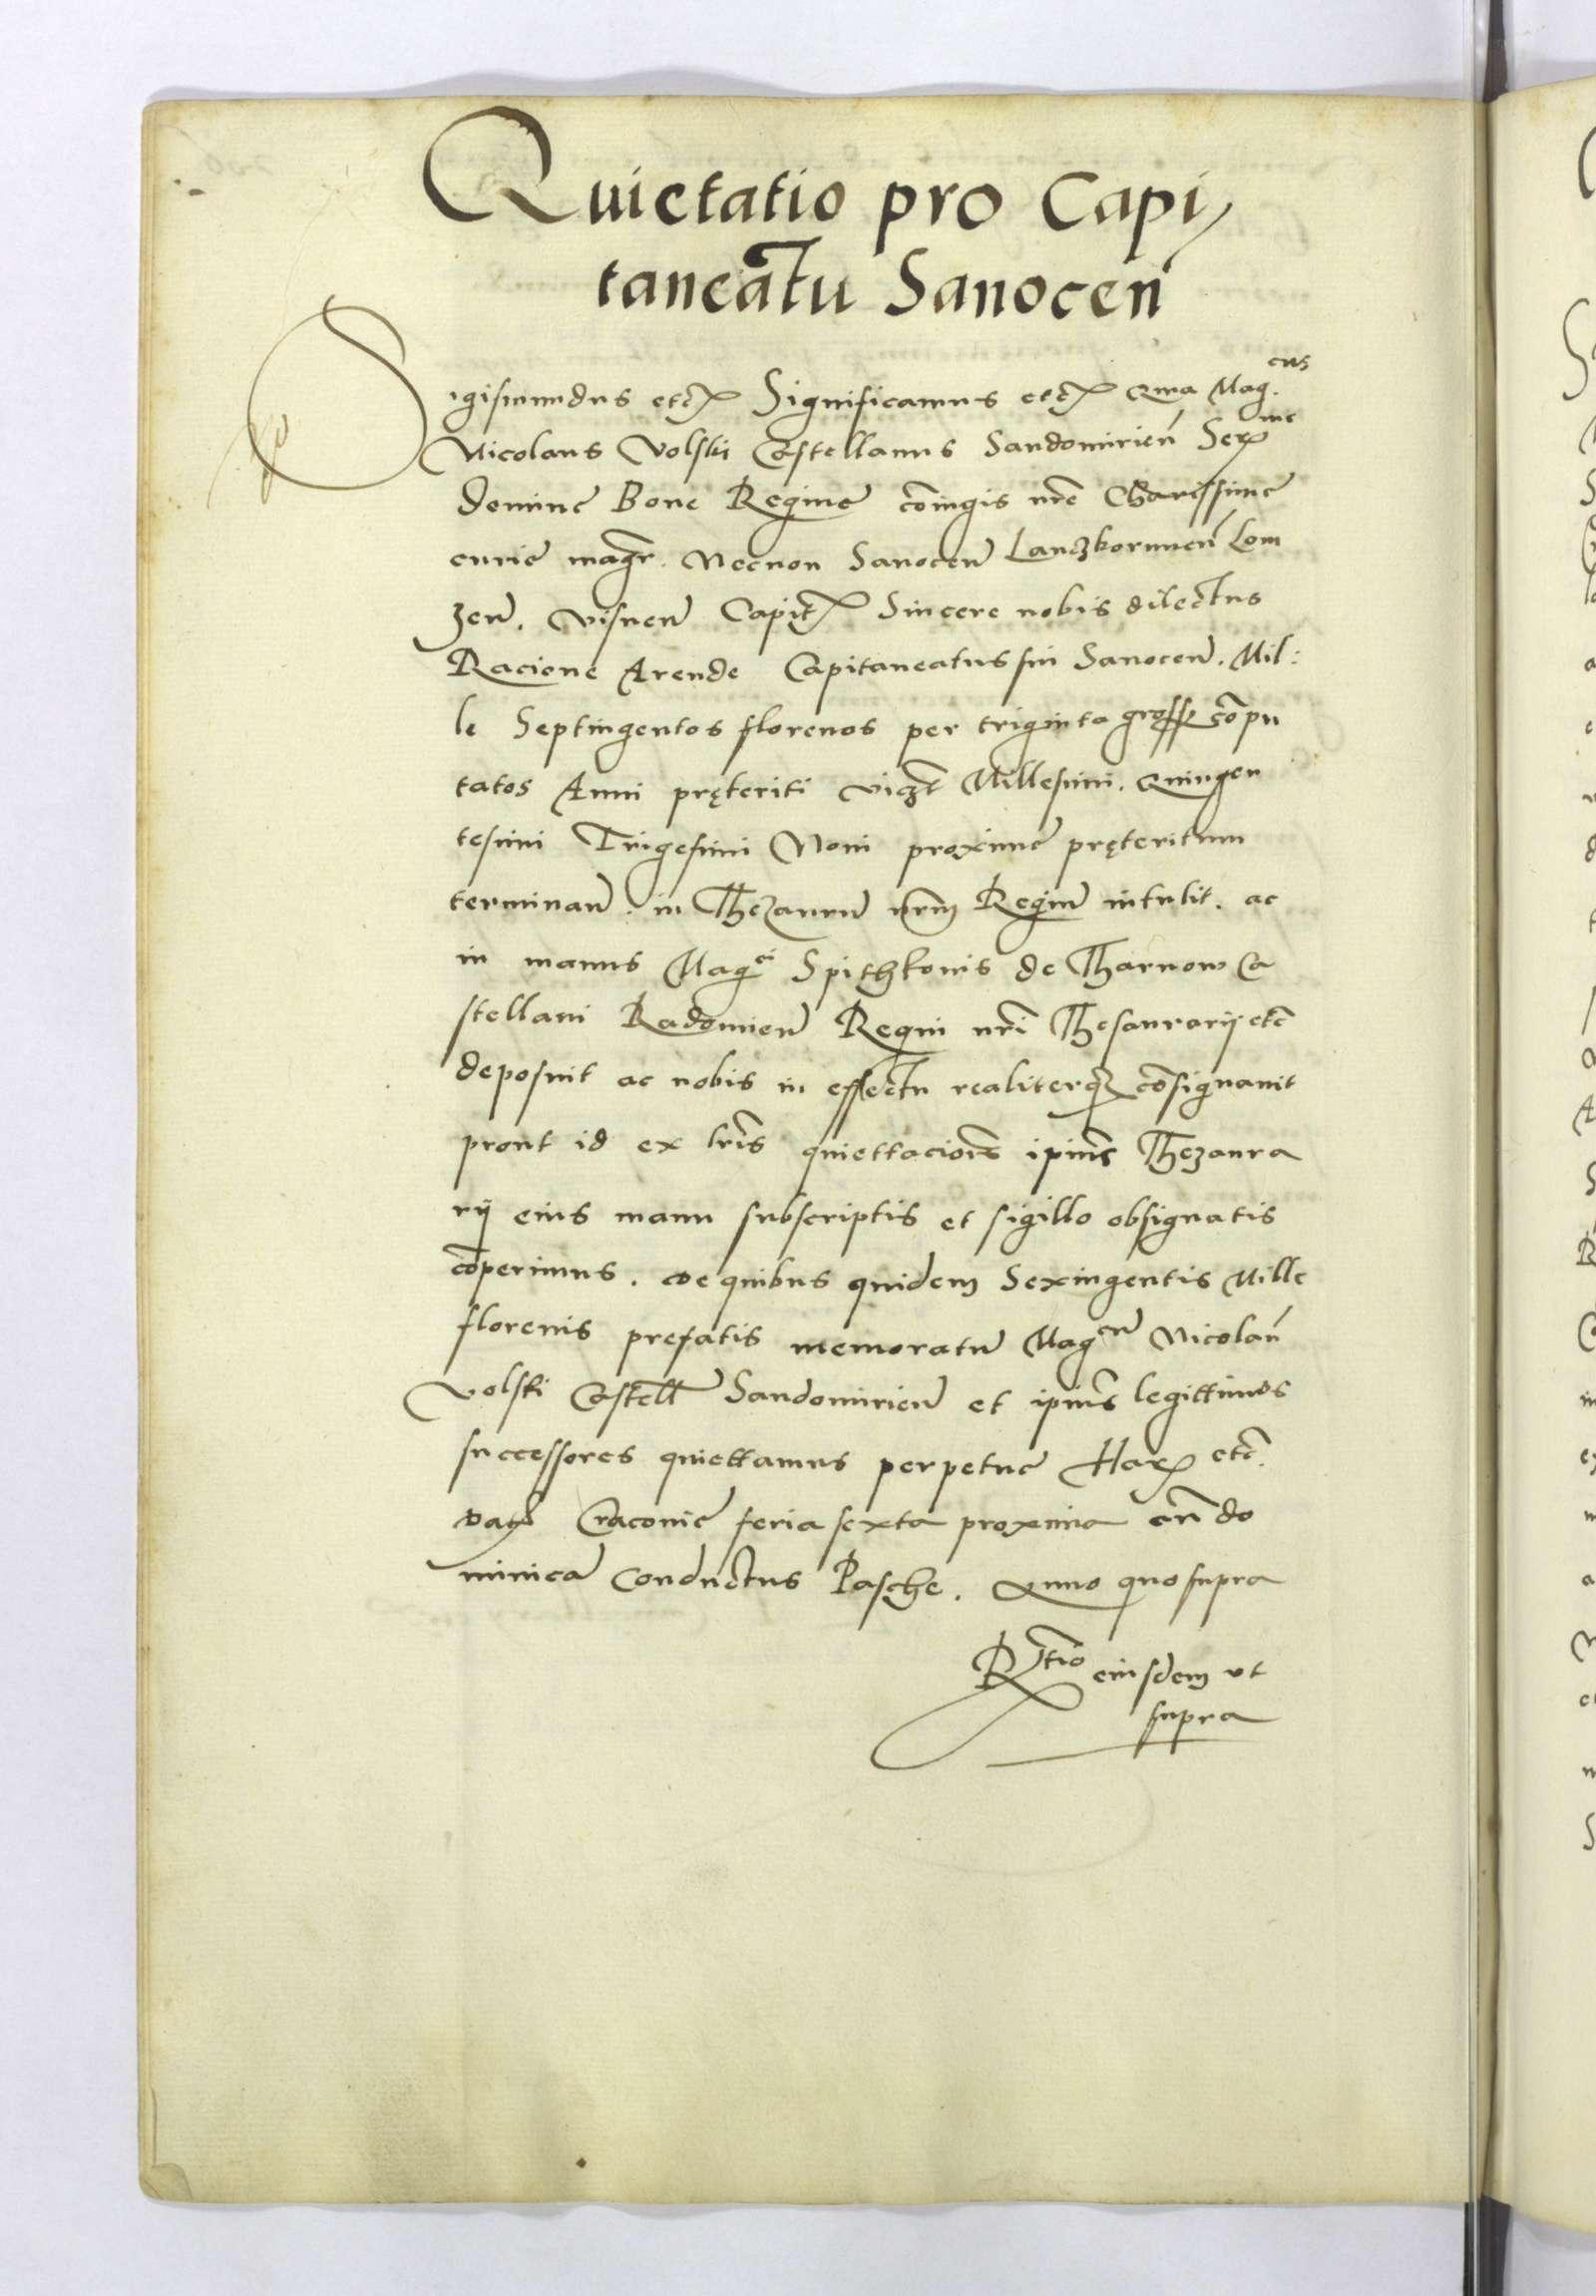 Quietatio pro Capi/
taneatu Sanocen̄
Sigismundus etc̄ Significamus etc̄ qma Mag.cus
Nicolaus Volski Castellanus Sandomirien̄ Ser.me
domine Bone Regine cōiugis nr̄e Charissime
curie magr̄. Necnon Sanocen̄ Lanczkorunen̄ Lom
zen̄. Visnen̄ Capit̄ Sincere nobis dilectus
Racione Arende Capitaneatus sui Sanocen̄. Mil:
le Septingentos florenos per triginta gross̄ cōpu
tatos Anni pręteriti viczt Millesimi. Quingen
tesimi Trigesimi Noni proxime pręteritum
terminan̄. in Thezaurū nr̄m Regiū intulit. ac
in manus Mag.ci Spithkonis de Tharnow Ca
stellani Radomien̄ Regni nr̄i Thesaurarij etc̄
deposuit ac nobis in effectu realiterq̄ cōsignauit
prout id ex lr̄is quiettaciōis ipius Thezaura
rij eius manu subscriptis et sigillo obsignatis
cōperimus. de quibus quidem Sexingentis Mille
florenis prefatis memoratū Mag.cū Nicolaū
Volski Castell̄ Sandomirien̄ et ipiūs legittimos
successores quiettamus perpetue Har̄ etc̄.
dat̄ Cracovie feria sexta proxima an̄ do
minicā Conductus Pasche. Anno quo supra
R̄tio eiusdem vt
supra